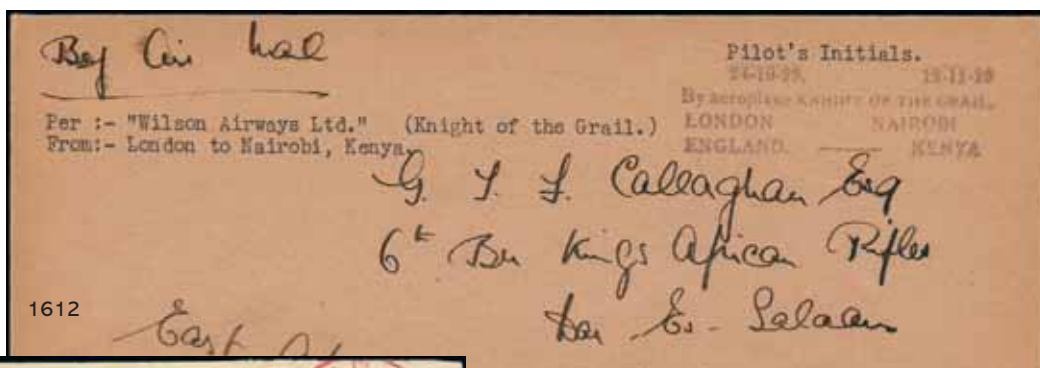 By Air Mail
Pilot's Initials.
24-10-29. 13-11-29
By aeroplane KNIGHT OF THE GRAIL.
LONDON NAIROBI
ENGLAND. —— KENYA
Per :- "Wilson Airways Ltd." (Knight of the Grail.)
From:- London to Nairobi, Kenya.
Callaghan Esq
6th Bn Kings African Rifles
Dar Es-Salaam
East
1612